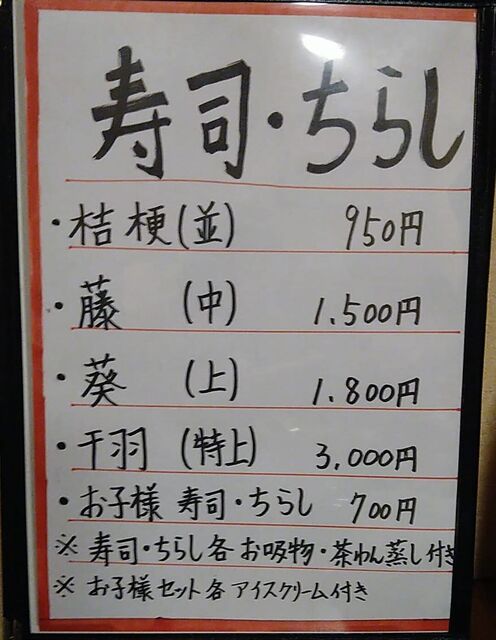 寿司・ちらし
・桔梗(並) 950円
・藤 (中) 1.500円
・葵 (上) 1.800円
・千羽 (特上) 3,000円
・お子様 寿司・ちらし 700円
※ 寿司・ちらし各 お吸物・茶わん蒸し付き
※ お子様セット各 アイスクリーム付き